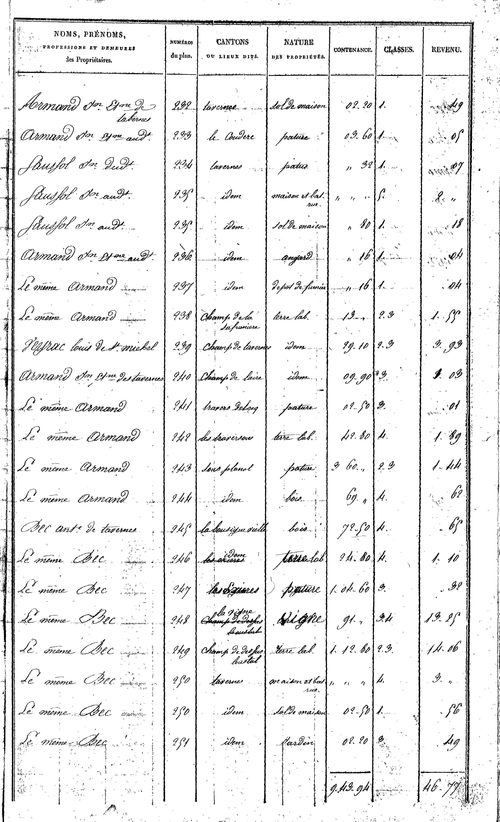 NOMS, PRÉNOMS, PROFESSIONS ET DEMEURES des Propriétaires. NUMÉROS du plan. CANTONS OU LIEUX DITS. NATURE DES PROPRIÉTÉS. CONTENANCE. CLASSES. REVENU.
Armand Jn Etne de tavernes 232 tavernes sol de maison 02.20 1. 49
Armand Jn Etne audt 233 le Couderc pature 03.60 1. 05
Saussol Jn dudt 234 tavernes patus " 32 1. 07
Saussol Jn audt 235 idem maison et bat. rur. " " " 5. 2. "
Saussol Jn audt 235 idem sol de maison " 80 1. 18
Armand Jn Etne audt 236 idem angard " 16 1. 04
Le même Armand 237 idem depot de fumier " 16 1. 04
Le même Armand 238 Champ de la terre lab. 13. " 2.3 1. 55
Peyrac louis de St. michel 239 Champ de tavernes idem 29.10 2.3 3. 93
Armand Jn Etne des tavernes 240 Champ de l'aire idem 09.90 2.3 1. 03
Le même Armand 241 pature 02.50 3. 01
Le même Armand 242 les traverses terre lab. 42.80 4. 1. 89
Le même Armand 243 sous planol pature 3 60. " 2.3 1. 44
Le même Armand 244 idem bois 69 " 4. 62
Bec ante. de tavernes 245 la bousigue vieille bois 72.50 4. 65
Le même Bec 246 idem terre lab 24.80 4. 1. 10
Le même Bec 247 pature 1.04.60 3. 32
Le même Bec 248 la vigne vigne 91. " 3.4 13. 25
Le même Bec 249 Champ de dessus terre lab. 1.12.80 2.3 14. 06
Le même Bec 250 tavernes maison et bat. rur. " " " 4. 3. "
Le même Bec 250 idem sol de maison 02.50 1. 56
Le même Bec 251 idem Jardin 02.20 3. 49
9.43.94 46.77